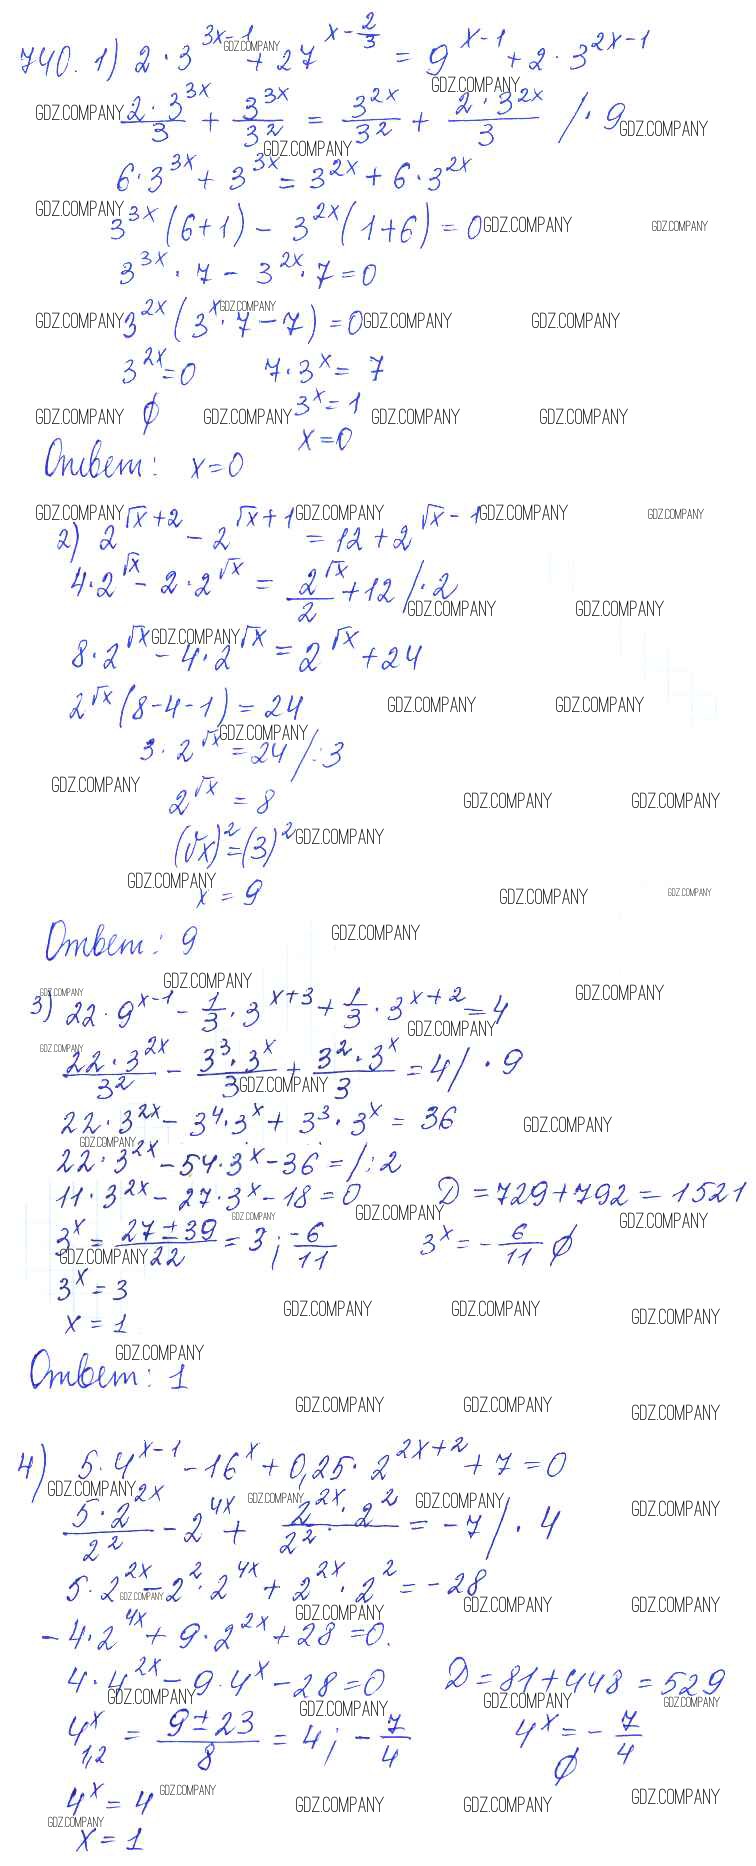 740. 1) 2·3^(3x-1) + 27^(x-2/3) = 9^(x-1) + 2·3^(2x-1)
2·3^(3x)/3 + 3^(3x)/3^2 = 3^(2x)/3^2 + 2·3^(2x)/3 /·9
6·3^(3x) + 3^(3x) = 3^(2x) + 6·3^(2x)
3^(3x)(6+1) - 3^(2x)(1+6) = 0
3^(3x)·7 - 3^(2x)·7 = 0
3^(2x)(3^x·7-7) = 0
3^(2x) = 0 7·3^x = 7
∅ 3^x = 1
x = 0
Ответ: x=0
2) 2^(√x+2) - 2^(√x+1) = 12 + 2^(√x-1)
4·2^√x - 2·2^√x = 2^√x/2 + 12 /·2
8·2^√x - 4·2^√x = 2^√x + 24
2^√x(8-4-1) = 24
3·2^√x = 24 /:3
2^√x = 8
(√x)^2 = (3)^2
x = 9
Ответ: 9
3) 22·9^(x-1) - 1/3·3^(x+3) + 1/3·3^(x+2) = 4
22·3^(2x)/3^2 - 3^3·3^x/3 + 3^2·3^x/3 = 4 /·9
22·3^(2x) - 3^4·3^x + 3^3·3^x = 36
22·3^(2x) - 54·3^x - 36 = /:2
11·3^(2x) - 27·3^x - 18 = 0 D = 729+792 = 1521
3^x = (27±39)/22 = 3; -6/11 3^x = -6/11 ∅
3^x = 3
x = 1
Ответ: 1
4) 5·4^(x-1) - 16^x + 0,25·2^(2x+2) + 7 = 0
5·2^(2x)/2^2 - 2^(4x) + 2^(2x)·2^2/2^2 = -7 /·4
5·2^(2x) - 2^2·2^(4x) + 2^(2x)·2^2 = -28
-4·2^(4x) + 9·2^(2x) + 28 = 0.
4·4^(2x) - 9·4^x - 28 = 0 D = 81+448 = 529
4^x_(1,2) = (9±23)/8 = 4; -7/4 4^x = -7/4
∅
4^x = 4
x = 1
GDZ.COMPANY